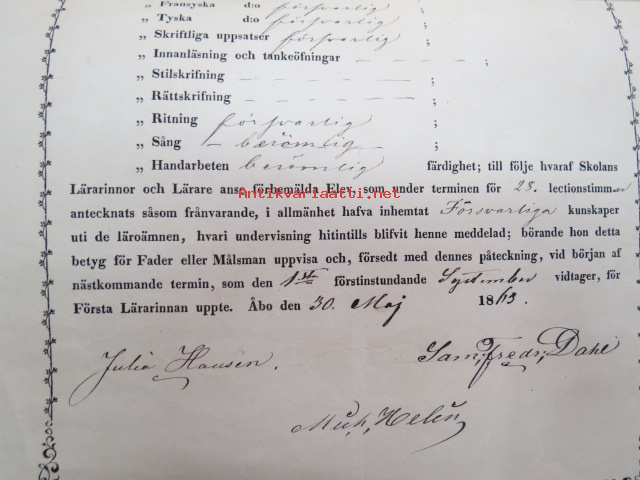 „ Fransyska d:o försvarlig ;
„ Tyska d:o försvarlig ;
„ Skriftliga uppsatser försvarlig ;
„ Innanläsning och tankeöfningar – – – – – ;
„ Stilskrifning – – – – – – – ;
„ Rättskrifning – – – – – – – ;
„ Ritning försvarlig ;
„ Sång – berömlig – ;
„ Handarbeten berömlig färdighet; till följe hvaraf Skolans
Lärarinnor och Lärare anse förbemälda Elev, som under terminen för 28. lectionstimmar
Antikvariaatti.net
antecknats såsom frånvarande, i allmänhet hafva inhemtat Försvarliga kunskaper
uti de läroämnen, hvari undervisning hitintills blifvit henne meddelad; börande hon detta
betyg för Fader eller Målsman uppvisa och, försedt med dennes påteckning, vid början af
nästkommande termin, som den 1st förstinstundande September vidtager, för
Första Lärarinnan uppte. Åbo den 30. Maj 1863.
Julia Hausen. Sam. Fredr. Dahl